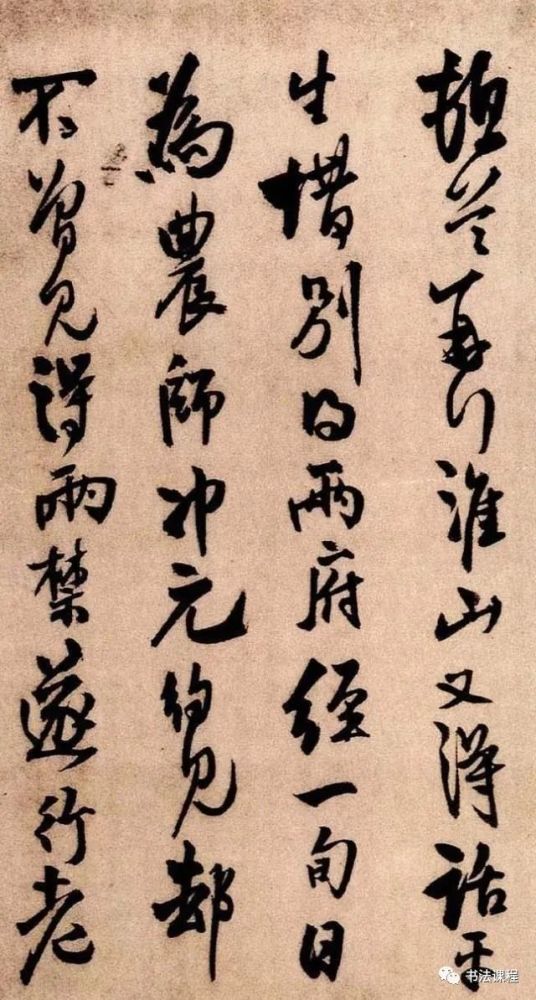 再行淮山又得話平
生惜別兩府經一旬日
為農師冲元約見却
不曾見得兩禁遂行老
书法课程